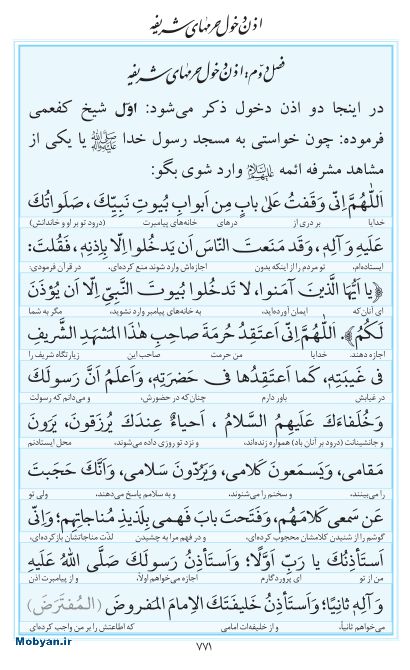 اذن دخول حرمهای شریفه
فصل دوّم: اذن دخول حرمهای شریفه
در اینجا دو اذن دخول ذکر می‌شود: اوّل شیخ کفعمی
فرموده: چون خواستی به مسجد رسول خدا ﷺ یا یکی از
مشاهد مشرفه ائمه علیهم‌السلام وارد شوی بگو:
اَللّٰهُمَّ اِنّی وَقَفتُ عَلیٰ بابٍ مِن اَبوابِ بُیوتِ نَبیِّکَ، صَلَواتُکَ
خدایا بر دری از درهای خانه‌های پیامبرت (درود تو بر او و خاندانش)
عَلَیهِ وَآلِهِ، وَقَد مَنَعتَ النّاسَ اَن یَدخُلوا اِلّا بِاِذنِهِ، فَقُلتَ:
ایستاده‌ام، تو مردم را از اینکه بدون اجازه‌اش وارد شوند منع کرده‌ای، در قرآن فرمودی:
﴿یا اَیُّهَا الَّذینَ آمَنوا، لا تَدخُلوا بُیوتَ النَّبیِّ اِلّا اَن یُؤذَنَ
ای آنان‌که ایمان آورده‌اید، به خانه‌های پیامبر وارد نشوید، مگر به شما
لَکُم﴾، اَللّٰهُمَّ اِنّی اَعتَقِدُ حُرمَةَ صاحِبِ هٰذَا المَشهَدِ الشَّریفِ
اجازه دهند. خدایا من حرمت صاحب این زیارتگاه شریف را
فی غَیبَتِهِ، کَما اَعتَقِدُها فی حَضرَتِهِ، وَاَعلَمُ اَنَّ رَسولَکَ
در غیابش باور دارم چنان‌که در حضورش، و می‌دانم که رسولت
وَخُلَفاءَکَ عَلَیهِمُ السَّلامُ ، اَحیاءٌ عِندَکَ یُرزَقونَ، یَرَونَ
و جانشینانت (درود بر آنان باد) همواره زنده‌اند، و نزد تو روزی داده می‌شوند، محل ایستادنم
مَقامی، وَیَسمَعونَ کَلامی، وَیَرُدّونَ سَلامی، وَاَنَّکَ حَجَبتَ
را می‌بینند، و سخنم را می‌شنوند، و به سلامم پاسخ می‌دهند، ولی تو
عَن سَمعی کَلامَهُم، وَفَتَحتَ بابَ فَهمی بِلَذیذِ مُناجاتِهِم؛ وَاِنّی
گوشم را از شنیدن کلامشان محجوب کرده‌ای، و در فهم مرا به چشیدن لذّت مناجاتشان باز کرده‌ای،
اَستَأذِنُکَ یا رَبِّ اَوَّلًا؛ وَاَستَأذِنُ رَسولَکَ صَلَّی اللهُ عَلَیهِ
من از تو ای پروردگارم اجازه می‌خواهم اولاً، و از پیامبرت اذن
وَآلِهِ ثانیًا؛ وَاَستَأذِنُ خَلیفَتَکَ الاِمامَ المَفروضَ (المُفتَرَضَ)
می‌خواهم ثانیاً، و از خلیفه‌ات امامی که اطاعتش را بر من واجب کرده‌ای
Mobyan.ir
۷۷۱